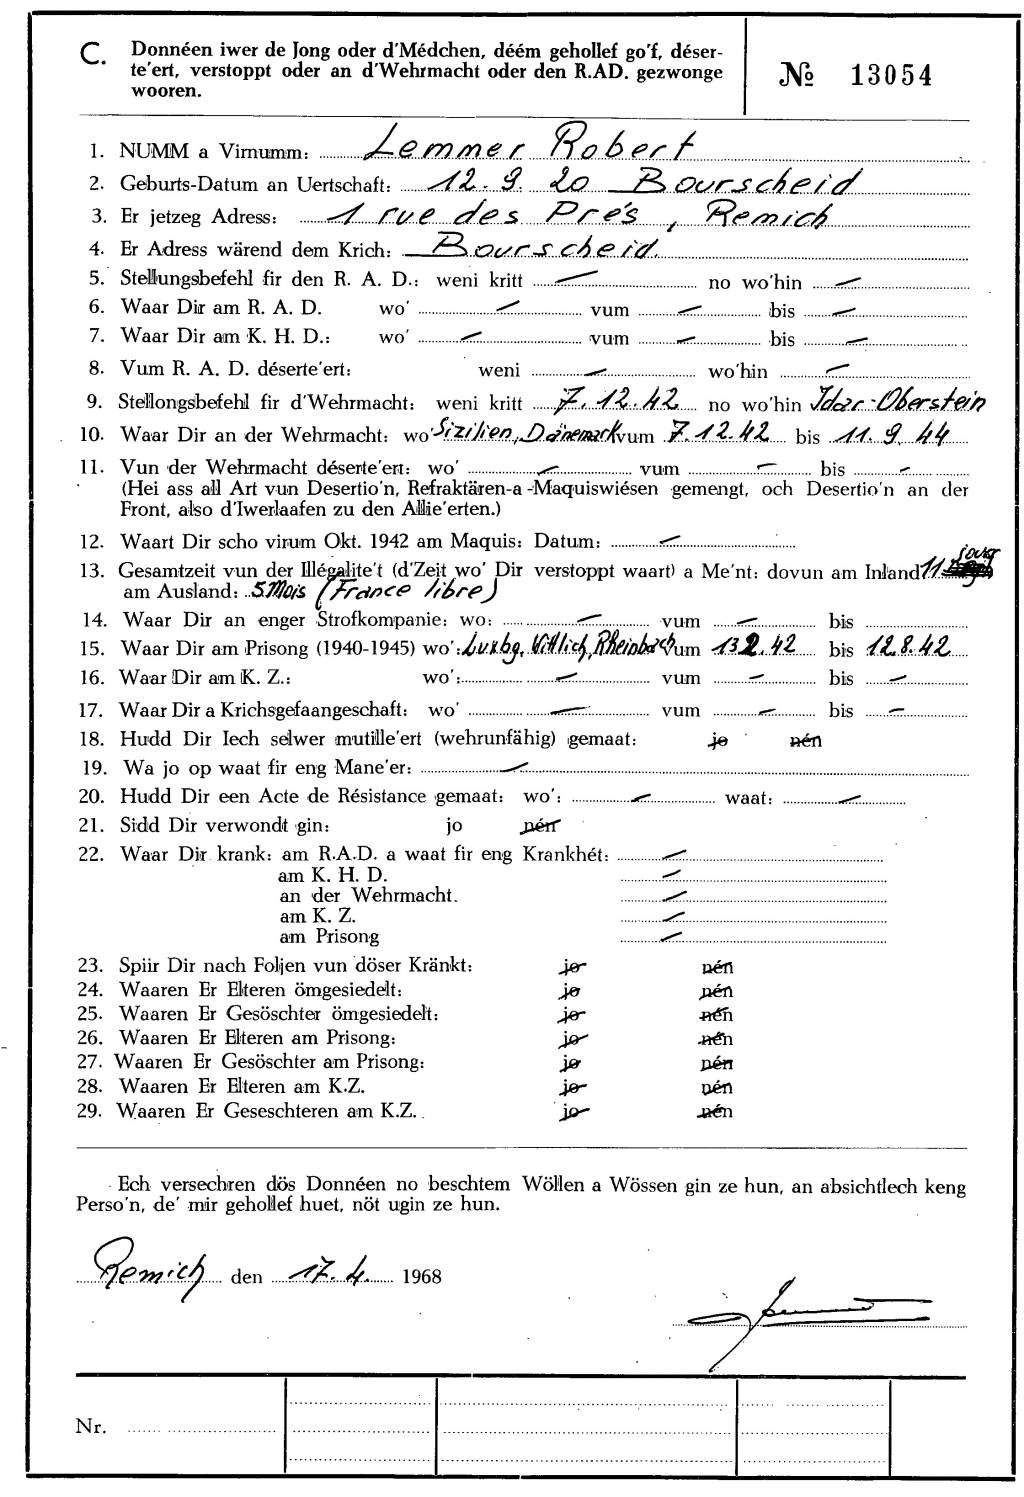 C. Donnéen iwer de Jong oder d'Médchen, déém gehollef go'f, déser-
te'ert, verstoppt oder an d'Wehrmacht oder den R.AD. gezwonge
wooren.
№ 13054
1. NUMM a Virnumm: Lemmer Robert
2. Geburts-Datum an Uertschaft: 12. 9. 20 Bourscheid
3. Er jetzeg Adress: 1 rue des Prés, Remich
4. Er Adress wärend dem Krich: Bourscheid.
5. Stellungsbefehl fir den R. A. D.: weni kritt — no wo'hin —
6. Waar Dir am R. A. D. wo' — vum — bis —
7. Waar Dir am K. H. D.: wo' — vum — bis —
8. Vum R. A. D. déserte'ert: weni — wo'hin —
9. Stellongsbefehl fir d'Wehrmacht: weni kritt 7. 12. 42 no wo'hin Idar-Oberstein
10. Waar Dir an der Wehrmacht: wo' Sizilien, Dänemark vum 7. 12. 42 bis 11. 9. 44
11. Vun der Wehrmacht déserte'ert: wo' — vum — bis —
(Hei ass all Art vun Desertio'n, Refraktären-a-Maquiswiésen gemengt, och Desertio'n an der
Front, also d'Iwerlaafen zu den Allie'erten.)
12. Waart Dir scho virum Okt. 1942 am Maquis: Datum: —
13. Gesamtzeit vun der Illégalite't (d'Zeit wo' Dir verstoppt waart) a Me'nt: dovun am Inland 11 jours
am Ausland: 5 Mois (France libre)
14. Waar Dir an enger Strofkompanie: wo: — vum — bis —
15. Waar Dir am Prisong (1940-1945) wo': Luxbg, Wittlich, Rheinbach vum 13 2. 42 bis 12. 8. 42
16. Waar Dir am K. Z.: wo': — vum — bis —
17. Waar Dir a Krichsgefaangeschaft: wo' — vum — bis —
18. Hudd Dir Iech selwer mutille'ert (wehrunfähig) gemaat: jo nén
19. Wa jo op waat fir eng Mane'er: —
20. Hudd Dir een Acte de Résistance gemaat: wo': — waat: —
21. Sidd Dir verwondt gin: jo nén
22. Waar Dir krank: am R.A.D. a waat fir eng Krankhét: —
am K. H. D. —
an der Wehrmacht. —
am K. Z. —
am Prisong —
23. Spiir Dir nach Foljen vun döser Kränkt: jo nén
24. Waaren Er Elteren ömgesiedelt: jo nén
25. Waaren Er Gesöschter ömgesiedelt: jo nén
26. Waaren Er Elteren am Prisong: jo nén
27. Waaren Er Gesöschter am Prisong: jo nén
28. Waaren Er Elteren am K.Z. jo nén
29. Waaren Er Geseschteren am K.Z. jo nén
Ech versechren dös Donnéen no beschtem Wöllen a Wössen gin ze hun, an absichtlech keng
Perso'n, de' mir gehollef huet, nöt ugin ze hun.
Remich den 17. 4. 1968
Nr.